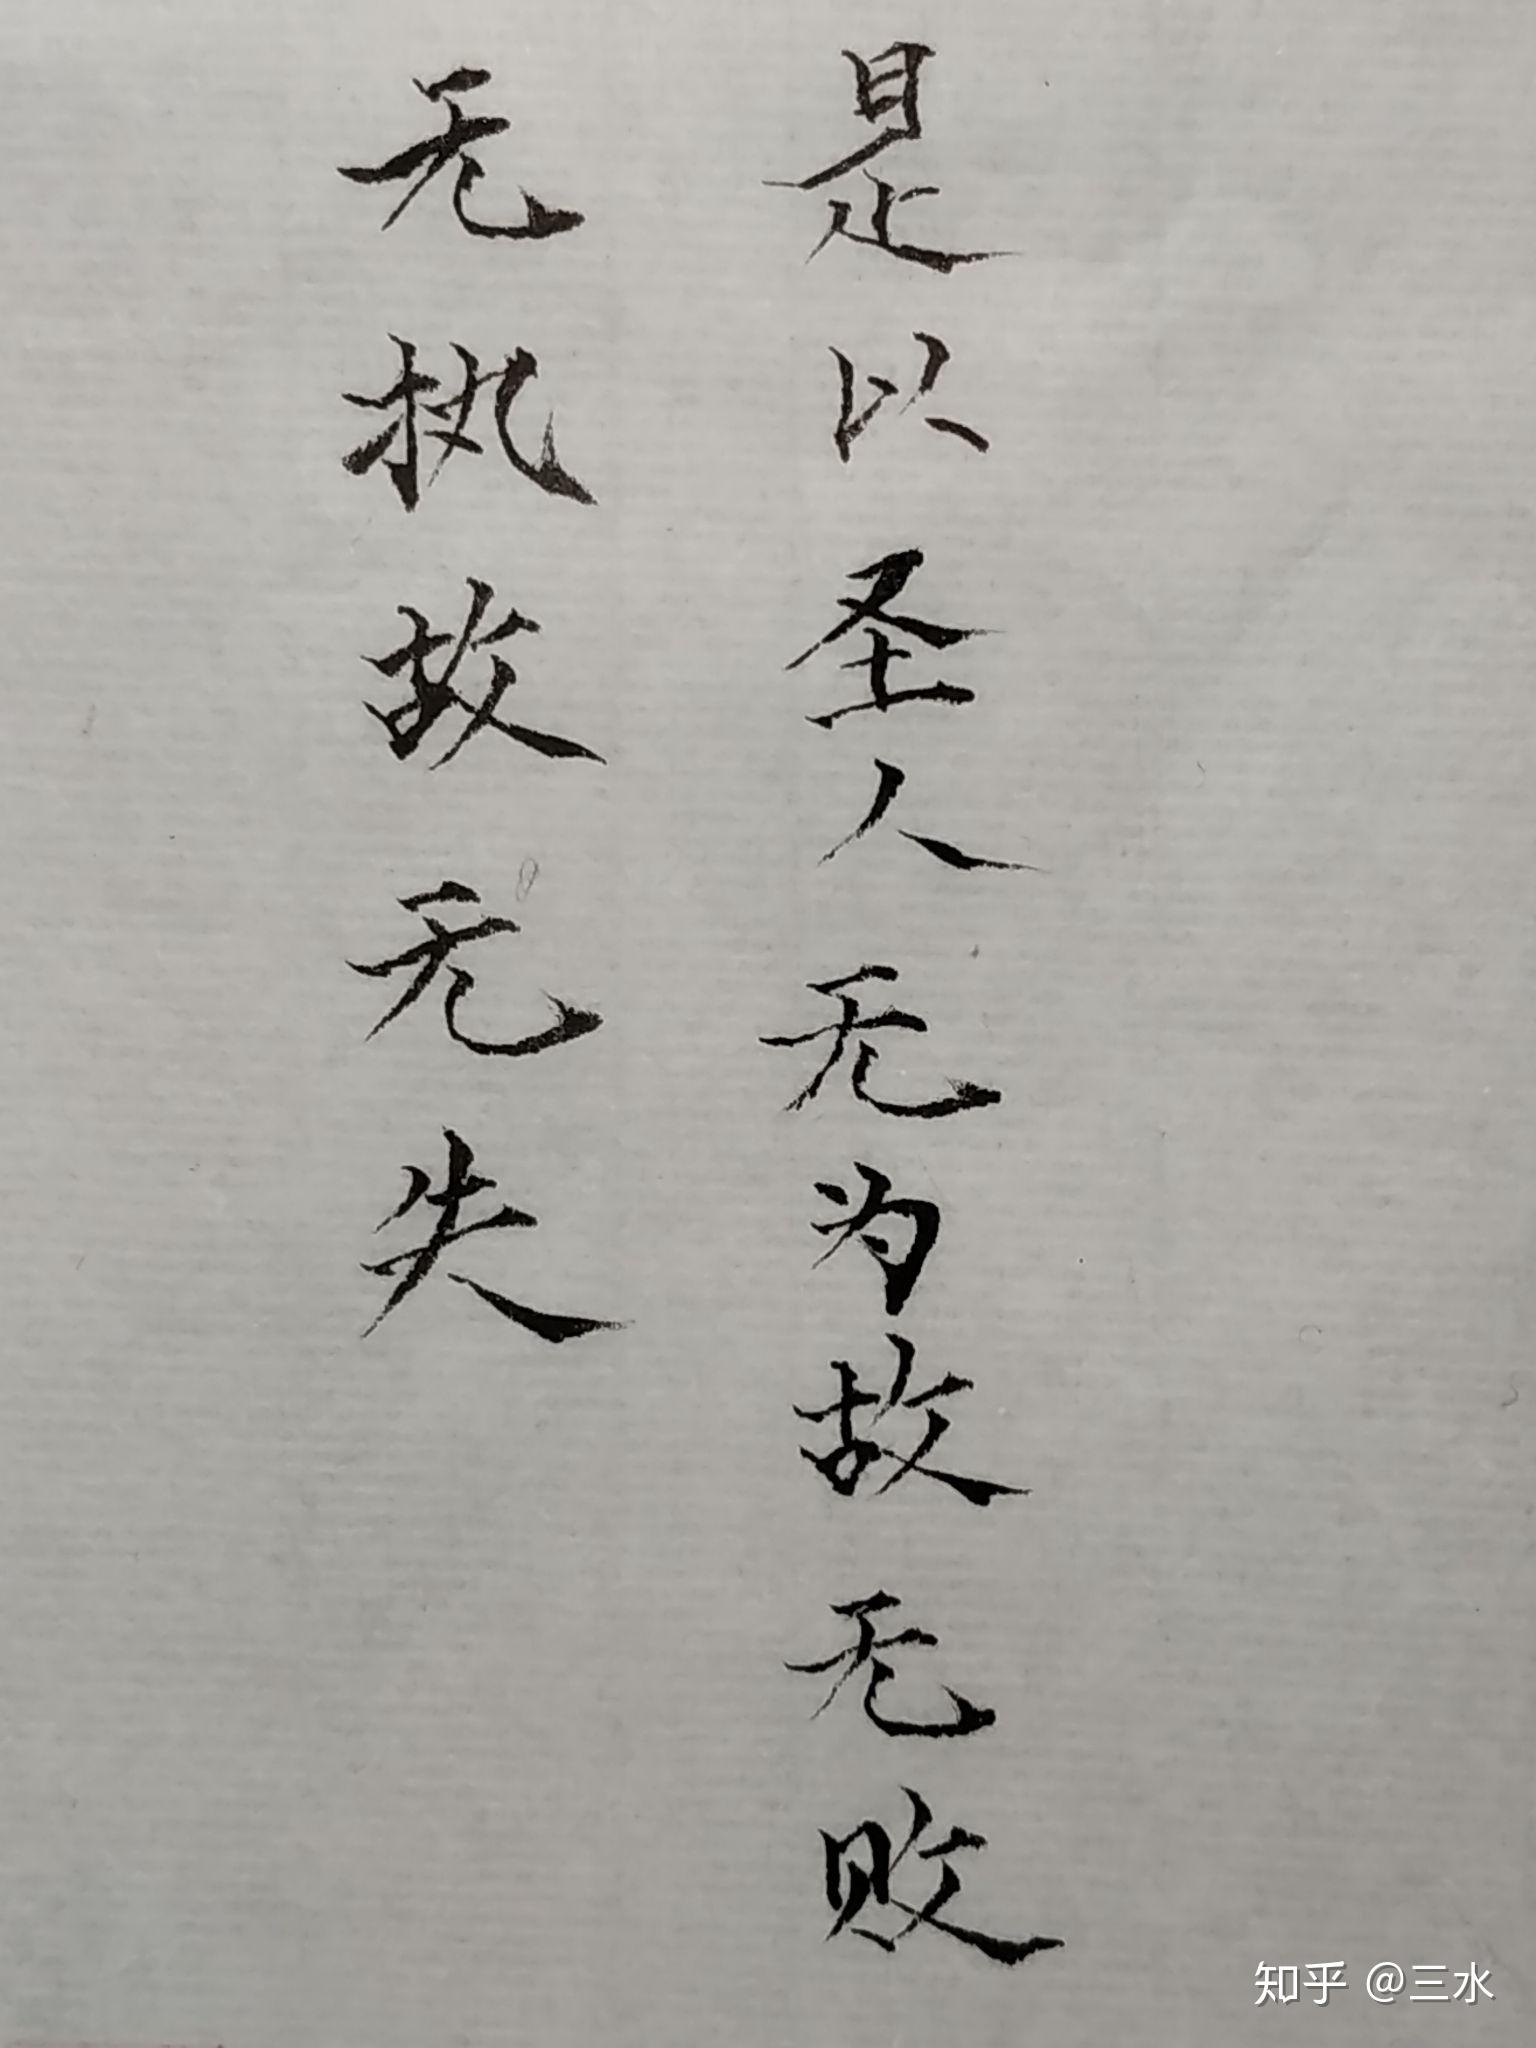 是以圣人无为故无败
无执故无失
知乎 @三水